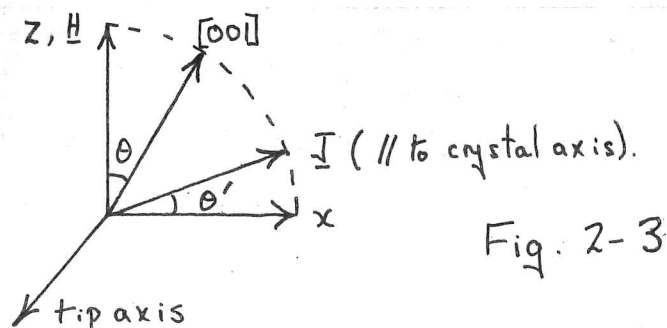 Z, H [001]
θ
J ( // to crystal axis).
θ'
x
Fig. 2-3
tip axis